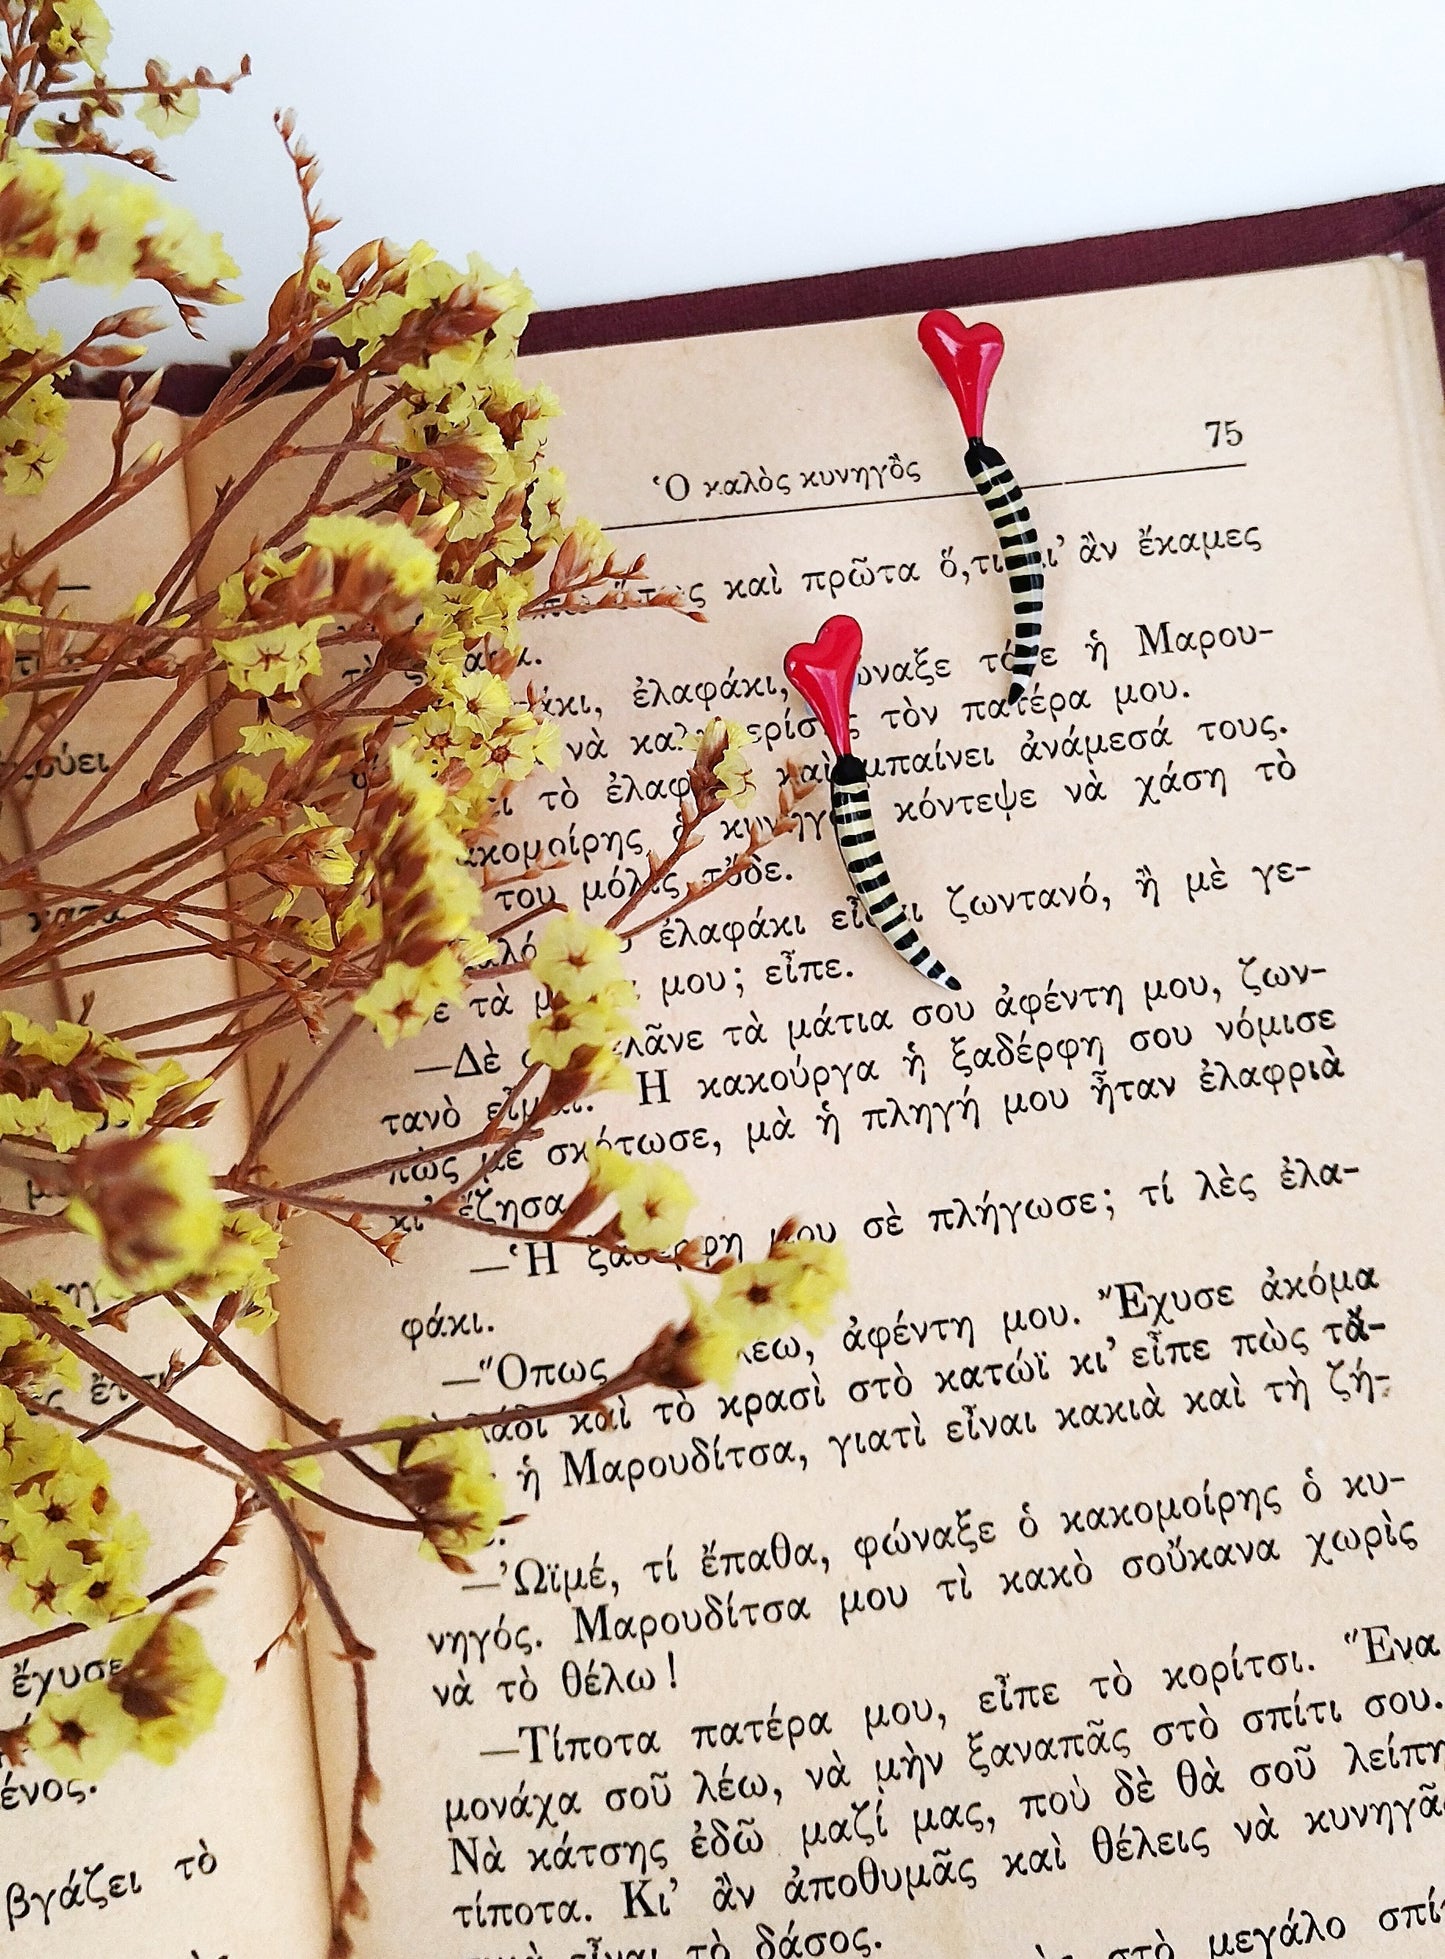 κούει
κατὰ
ἔχυσε
ένος.
βγάζει τὸ
Ὁ καλὸς κυνηγὸς
75
καὶ πρῶτα ὅ,τι κι' ἂν ἔκαμες
ἐλαφάκι, φώναξε τότε ἡ Μαρου-
νὰ καλωσορίσῃς τὸν πατέρα μου.
τὸ ἐλαφάκι καὶ μπαίνει ἀνάμεσά τους.
κακομοίρης ὁ κυνηγὸς κόντεψε νὰ χάση τὸ
του μόλις τὄδε.
ἐλαφάκι εἶσαι ζωντανό, ἢ μὲ γε-
τὰ μάτια μου; εἶπε.
—Δὲ σὲ γελᾶνε τὰ μάτια σου ἀφέντη μου, ζων-
τανὸ εἶμαι. Ἡ κακούργα ἡ ξαδέρφη σου νόμισε
πὼς μὲ σκότωσε, μὰ ἡ πληγή μου ἦταν ἐλαφριὰ
κι' ἔζησα
—Ἡ ξαδέρφη μου σὲ πλήγωσε; τί λὲς ἐλα-
φάκι.
—Ὅπως λέω, ἀφέντη μου. Ἔχυσε ἀκόμα
λάδι καὶ τὸ κρασὶ στὸ κατώϊ κι' εἶπε πὼς τἄ-
ἡ Μαρουδίτσα, γιατὶ εἶναι κακιὰ καὶ τὴ ζή-
—Ὠϊμέ, τί ἔπαθα, φώναξε ὁ κακομοίρης ὁ κυ-
νηγός. Μαρουδίτσα μου τὶ κακὸ σοὔκανα χωρὶς
νὰ τὸ θέλω!
—Τίποτα πατέρα μου, εἶπε τὸ κορίτσι. Ἕνα
μονάχα σοῦ λέω, νὰ μὴν ξαναπᾶς στὸ σπίτι σου.
Νὰ κάτσης ἐδῶ μαζί μας, ποὺ δὲ θὰ σοῦ λείπη
τίποτα. Κι' ἂν ἀποθυμᾶς καὶ θέλεις νὰ κυνηγᾶς
εἶναι τὸ δάσος.
στὸ μεγάλο